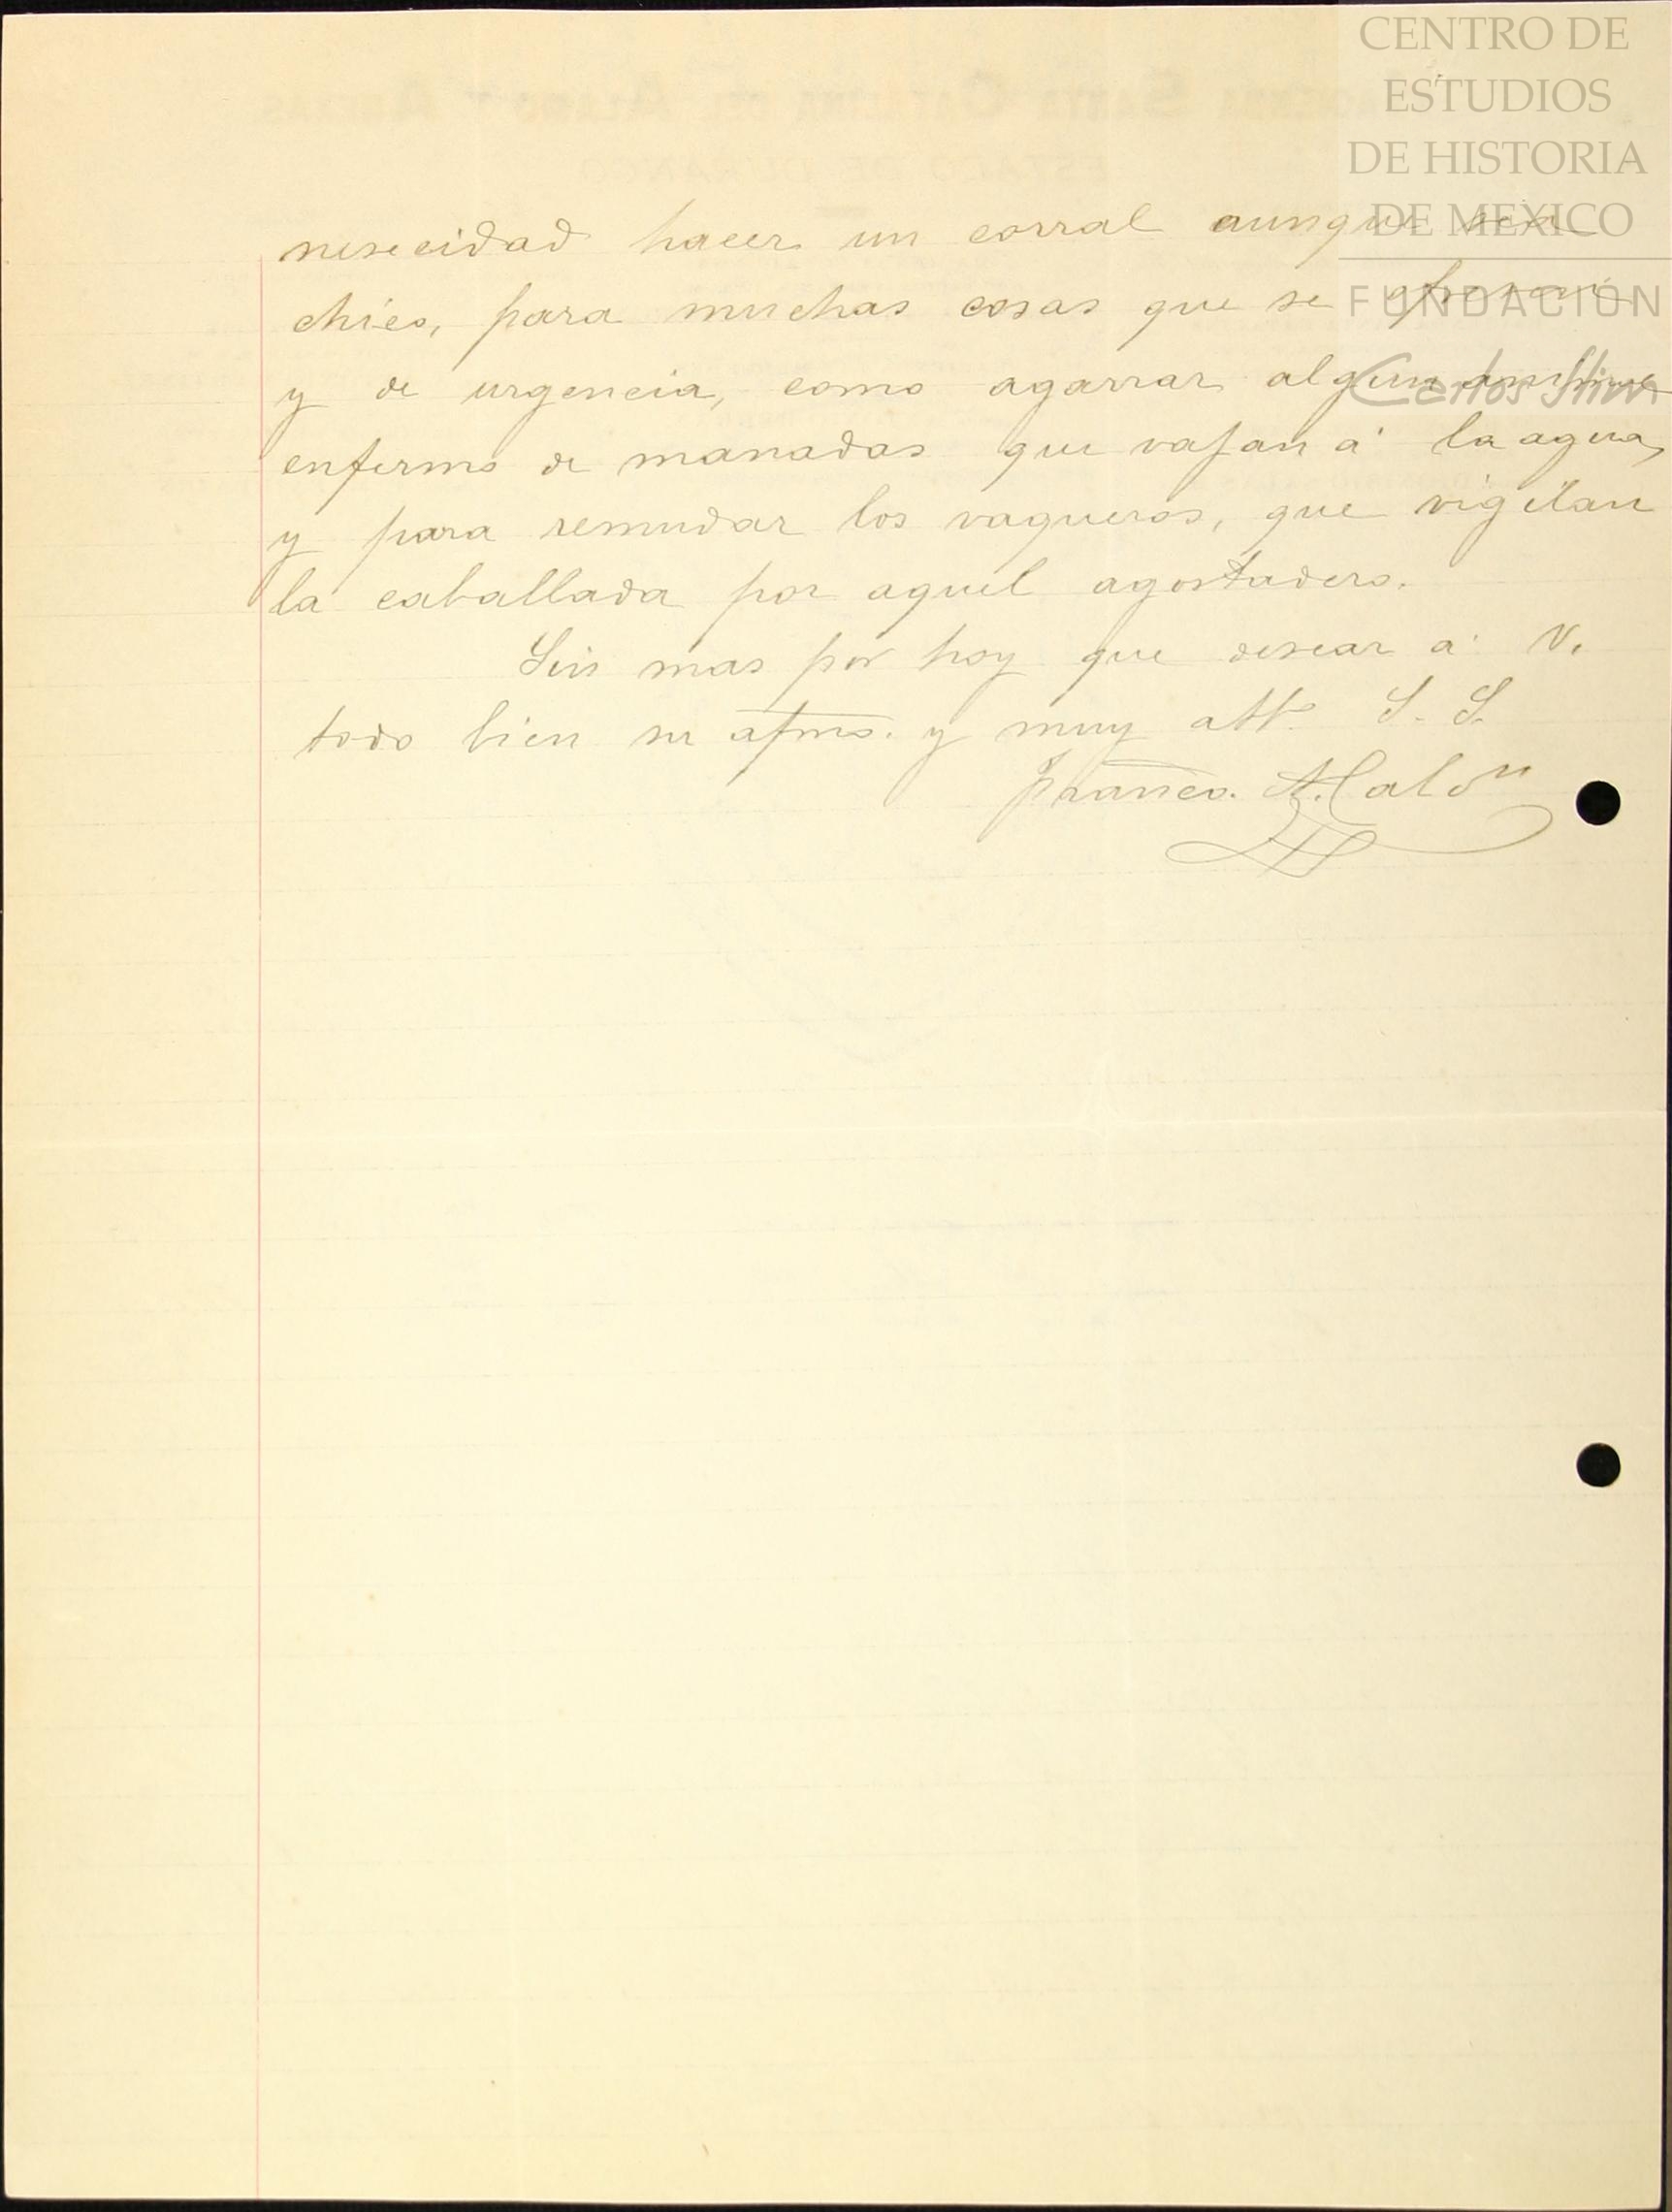 CENTRO DE
ESTUDIOS
DE HISTORIA
DE MEXICO
FUNDACIÓN
Carlos Slim
nesecidad hacer un corral aunque sea
chico, para muchas cosas que se
y de urgencia, como agarrar algun
enfermo de manadas que vajan á la agua,
y para remudar los vaqueros, que vigilan
la caballada por aquel agostadero.
Sin mas por hoy que desear á V.
todo bien su afmo. y muy atto. S. S.
Franco.